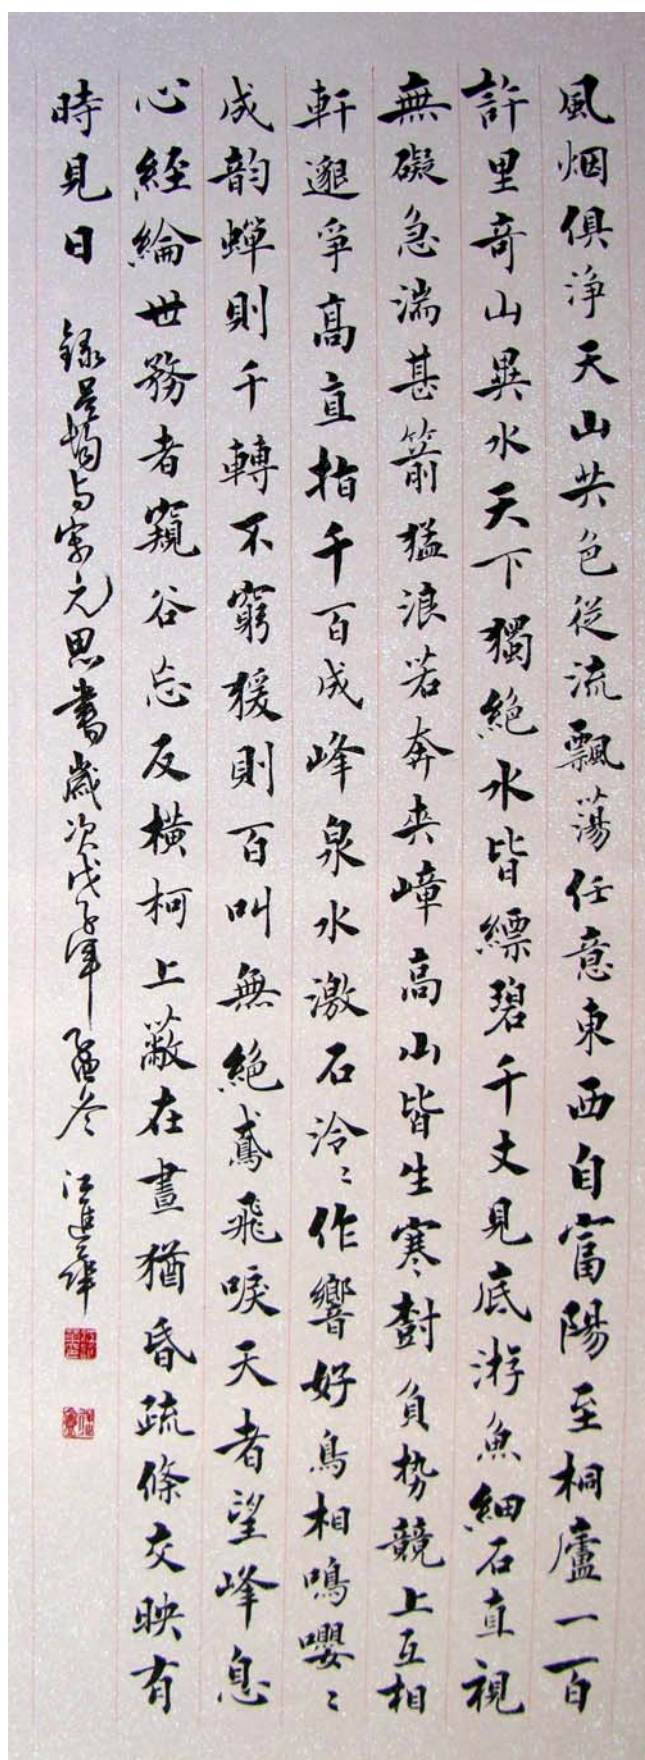 風烟俱淨天山共色從流飄蕩任意東西自富陽至桐廬一百
許里奇山異水天下獨絕水皆縹碧千丈見底游魚細石直視
無礙急湍甚箭猛浪若奔夹嶂高山皆生寒樹負势競上互相
軒邈爭高直指千百成峰泉水激石泠〻作響好鳥相鳴嚶〻
成韵蟬則千轉不窮猨則百叫無絕鳶飛唳天者望峰息
心經綸世務者窺谷忘反橫柯上蔽在晝猶昏疏條交映有
時見日 録吳均与宋元思書歲次戊子年孟冬 江進華